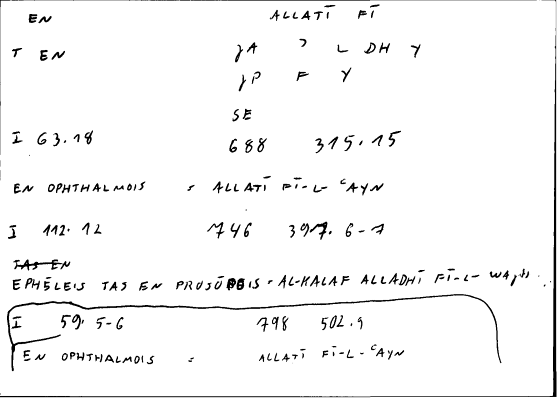 EN ALLATĪ FĪ
T EN ɟA ʾ L DH Y
ɟP F Y
SE
I 63.18 688 315.15
EN OPHTHALMOIS = ALLATĪ FĪ-L-ᶜAYN
I 112.12 746 397.6-7
TAS EN
EPHĒLEIS TAS EN PROSŌPOIS = AL-KALAF ALLADHĪ FĪ-L-
I 59.5-6 798 502.9
EN OPHTHALMOIS = ALLATĪ FĪ-L-ᶜAYN